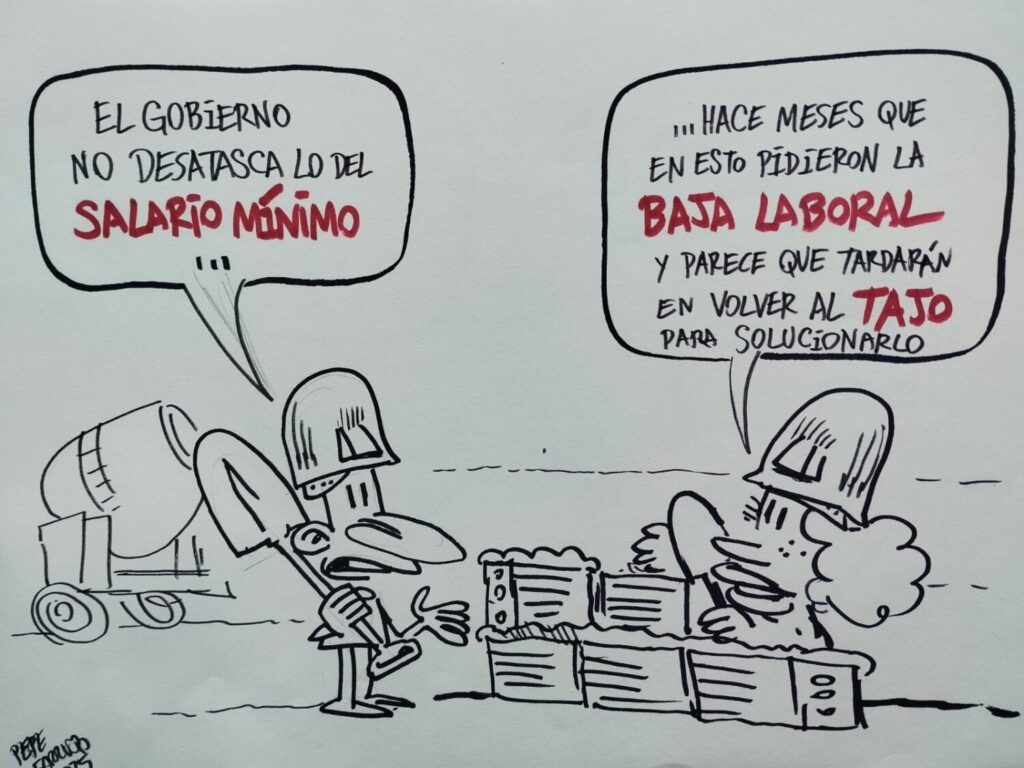 EL GOBIERNO
NO DESATASCA LO DEL
SALARIO MÍNIMO
...
...HACE MESES QUE
EN ESTO PIDIERON LA
BAJA LABORAL
Y PARECE QUE TARDARÁN
EN VOLVER AL TAJO
PARA SOLUCIONARLO
PEPE